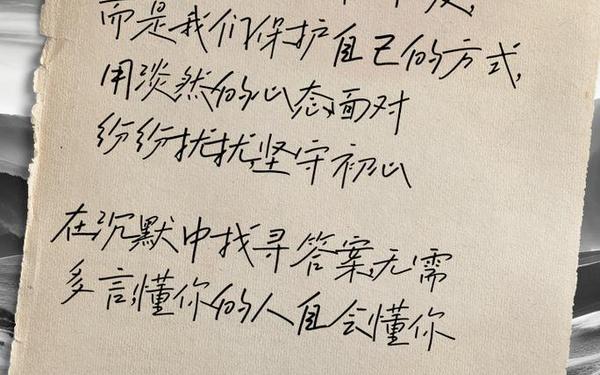 而是我们保护自己的方式,
用淡然的心态面对
纷纷扰扰,坚守初心
在沉默中找寻答案,无需
多言,懂你的人自会懂你